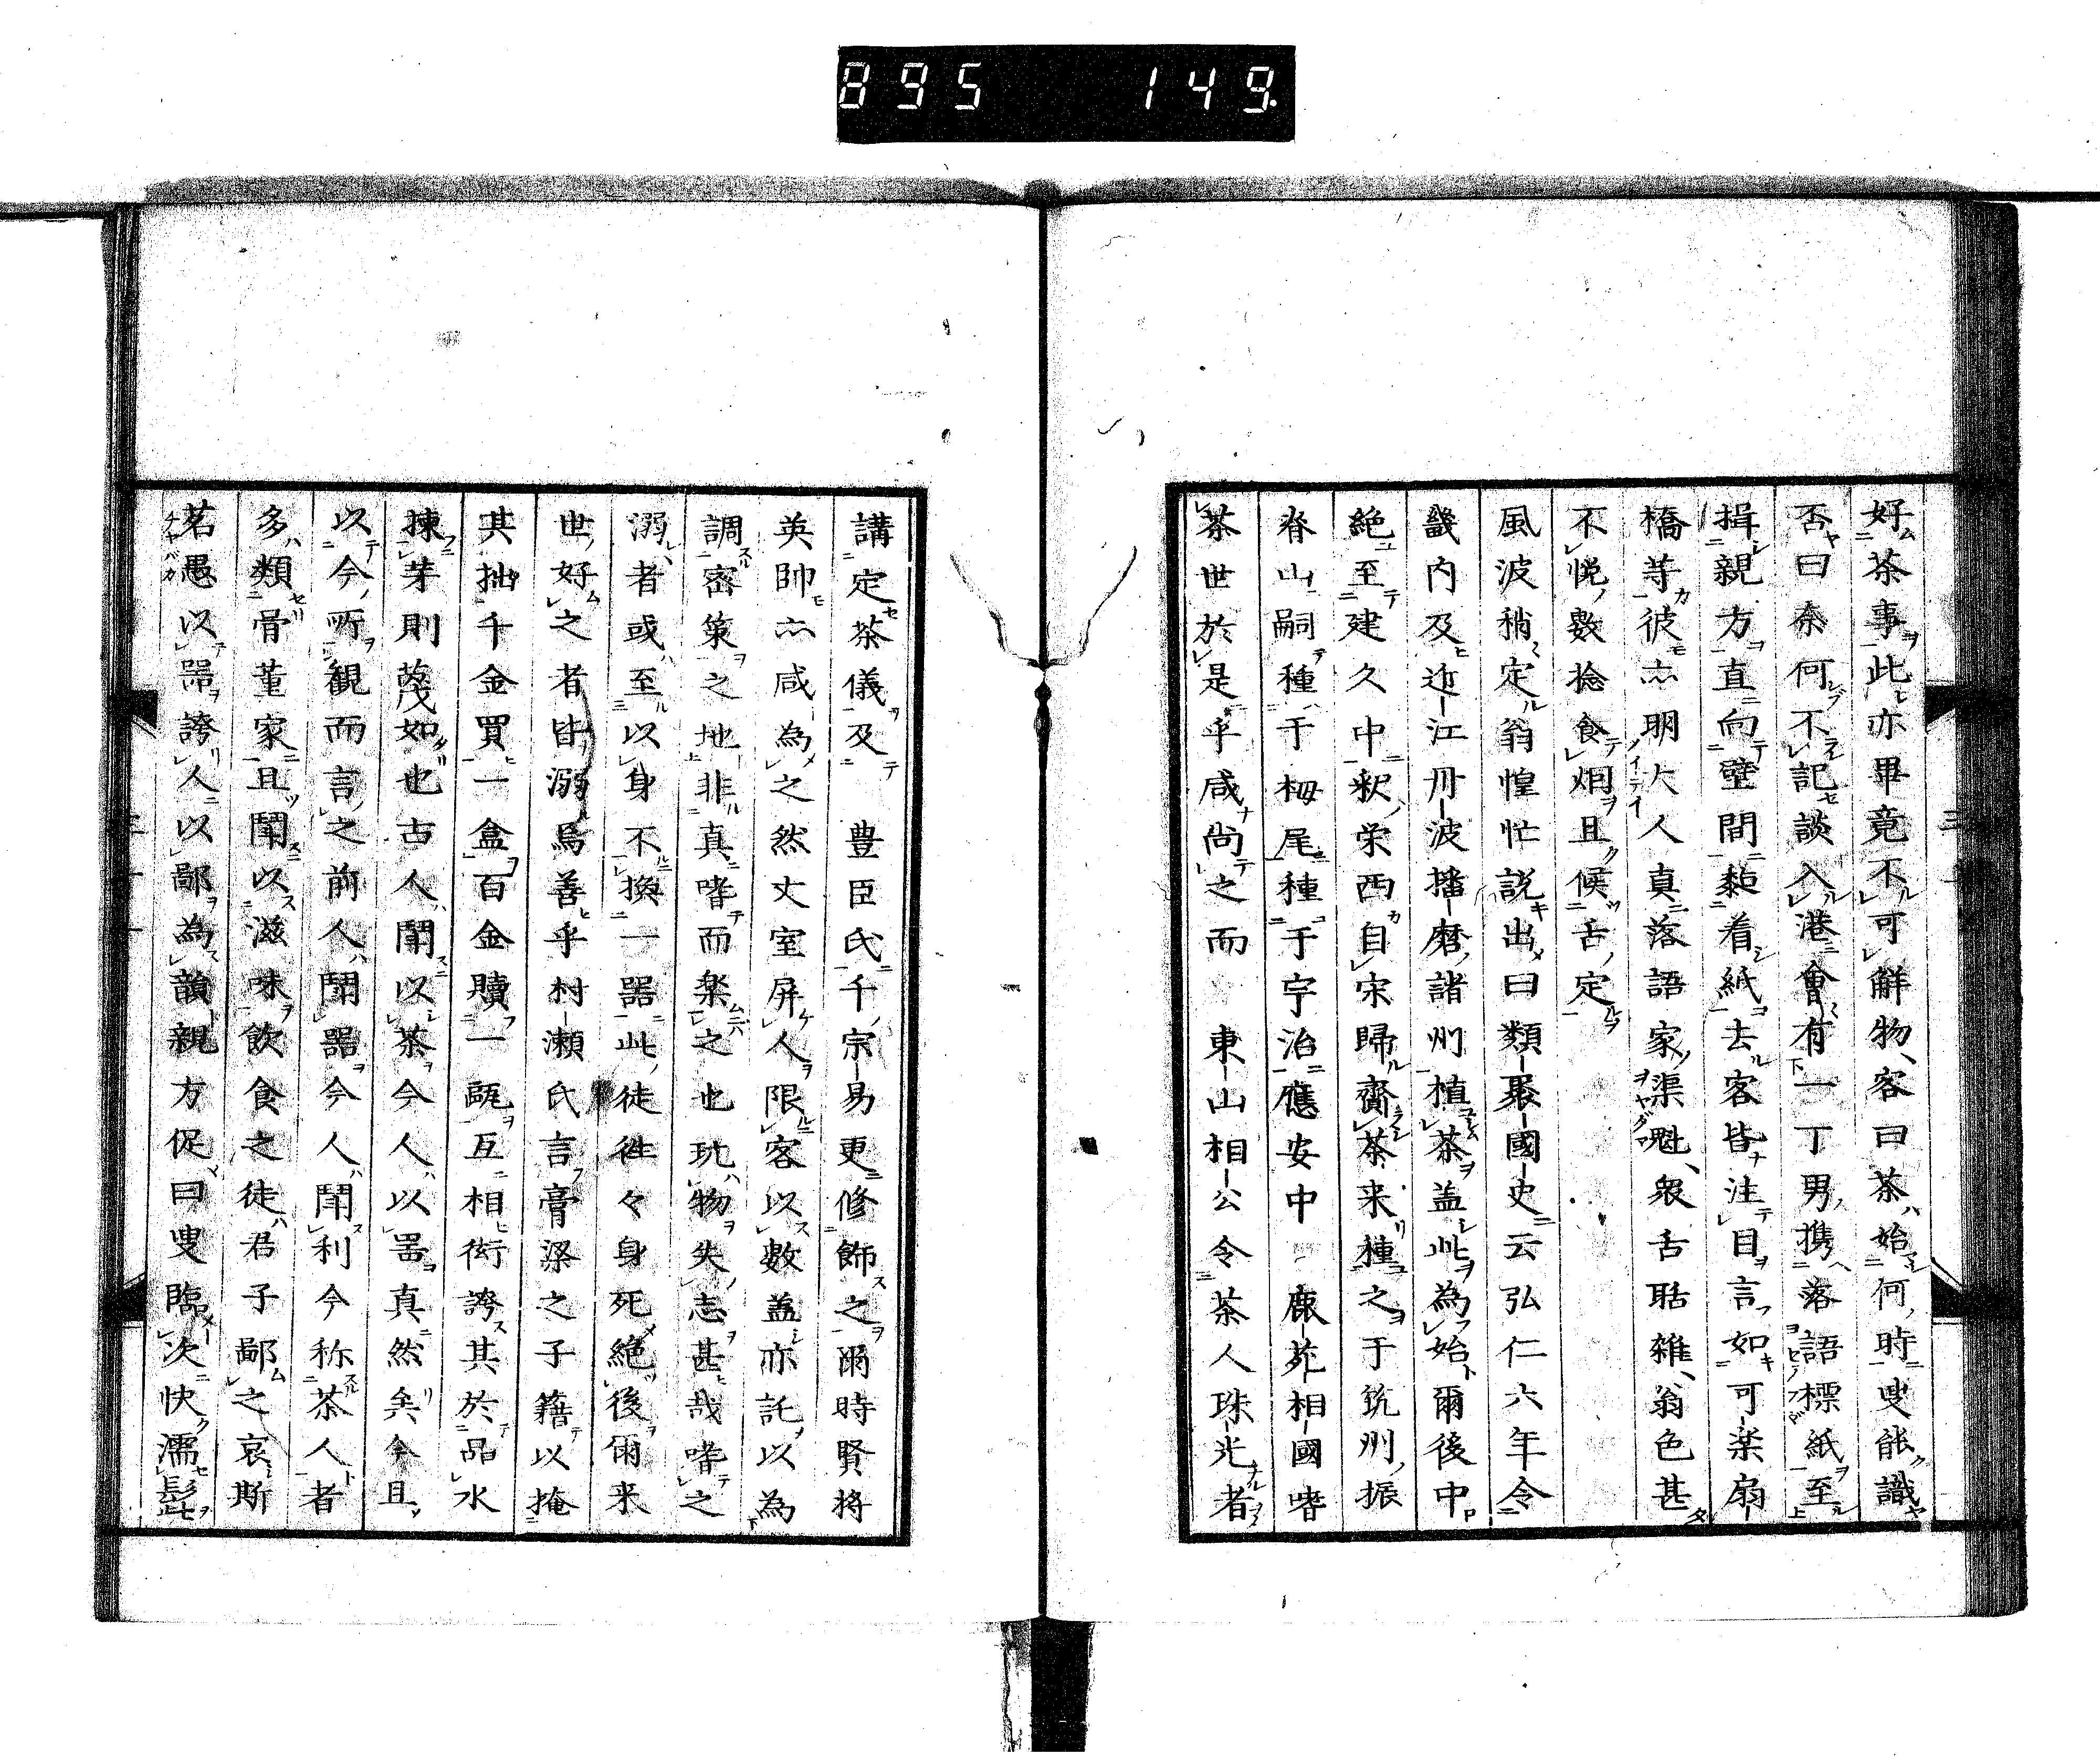 895 149
好茶事此亦畢竟不可觧物、客曰茶始何時叟能識
否曰奈何不記談入港會有一丁男携落語標紙至
揖親方直向壁間黏着紙去客皆注目言如可楽扇
橋等彼亦明大人真落語家渠魁、衆舌聒雜、翁色甚
不悦數捻食烟且候舌定
風波稍定翁惶忙説出曰類聚國史云弘仁六年令
畿内及近江丹波播磨諸州植茶盖此為始爾後中
絶至建久中釈栄西自宋歸齎茶来種之于筑州振
脊山嗣種于栂尾種于宇治應安中 鹿苑相國嗜
茶世於是乎咸尚之而 東山相公令茶人珠光者
講定茶儀及 豊臣氏千宗易更修飾之爾時賢将
英帥亦咸為之然丈室屏人限客以數盖亦託以為
調密策之地非真嗜而楽之也玩物失志甚哉嗜之
溺者或至以身不換一器此徒徃々身死絶後爾来
世好之者皆溺焉善乎村瀬氏言膏粱之子籍以掩
其拙千金買一盒百金贖一甌互相衒誇其於品水
揀芽則蔑如也古人鬧以茶今人以噐真然矣今且
以今所観而言之前人鬧器今人鬧利今称茶人者
多類骨董家且鬧以滋味飲食之徒君子鄙之哀斯
茗愚以噐誇人以鄙為韻親方促曰叟臨次快濡髭